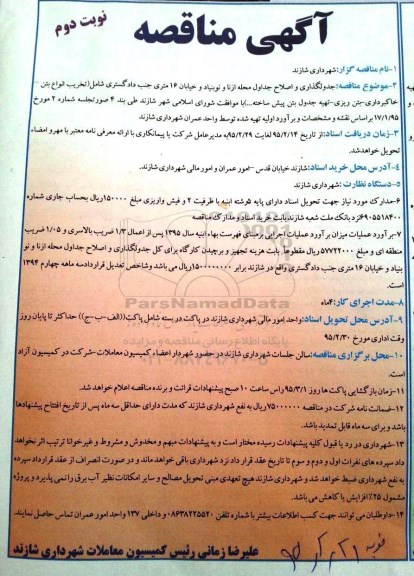 آگهی مناقصه
نوبت دوم
۱-نام مناقصه گزار:شهرداری شازند
۲-موضوع مناقصه:جدولگذاری و اصلاح جداول محله ازنا و نوبنیاد و خیابان ۱۶ متری جنب دادگستری شامل(تخریب انواع بتن -
خاکبرداری-بتن ریزی-تهیه جدول بتن پیش ساخته...)با موافقت شورای اسلامی شهر شازند طی بند ۴ صورتجلسه شماره ۲ مورخ
۹۵/۱/۱۷ براساس نقشه و مشخصات و برآورد اولیه تهیه شده توسط واحد عمران شهرداری شازند
۳-زمان دریافت اسناد:از تاریخ ۹۵/۲/۱۴ لغایت ۹۵/۲/۲۹ مدیرعامل شرکت یا پیمانکاری با ارائه معرفی نامه معتبر با مهر و امضاء
تحویل خواهدشد.
۴-آدرس محل خرید اسناد:شازند خیابان قدس -امور عمران و امور مالی شهرداری شازند.
۵-دستگاه نظارت :شهرداری شازند
۶-مدارک مورد نیاز جهت تحویل اسناد دارای پایه ۵رشته ابنیه با ظرفیت ۲ و فیش واریزی مبلغ ۱۵۰۰۰۰ریال بحساب جاری شماره
۶۹۰۵۵۱۸۴۰۰نزد بانک ملت شعبه شازند،بابت خرید اسناد و مدارک مناقصه
۷-برآورد عملیات میزان برآورد عملیات اجرایی برمبنای فهرست بهاء ابنیه سال ۱۳۹۵ پس از اعمال ۱/۳ ضریب بالاسری و ۱/۰۵ ضریب
منطقه ای و مبلغ ۵۷۷۲۲۰۰۰ ریال مقطوعا بابت هزینه تجهیز و برچیدن کارگاه برای کل جدولگذاری و اصلاح جداول محله ازنا و نو
بنیاد و خیابان ۱۶ متری جنب دادگستری واقع در شازند برابر ۱۵۰۰۰۰۰۰۰۰ریال می باشد وشاخص تعدیل قراردادسه ماهه چهارم ۱۳۹۴
است.
۸-مدت اجرای کار:۴ماه
۹-آدرس محل تحویل اسناد:واحد امور مالی شهرداری شازند در پاکت در بسته شامل پاکت((الف-ب-ج)) حداکثر تا پایان روز
وقت اداری مورخ ۹۵/۲/۳۰
۱۰-محل برگزاری مناقصه:سالن جلسات شهرداری شازند در حضور شهردار اعضاء کمیسیون معاملات-شرکت در کمیسیون آزاد
است.
۱۱-زمان بازگشایی پاکت ها روز ۹۵/۳/۱ راس ساعت ۱۰ صبح پیشنهادات قرائت و برنده مناقصه اعلام خواهد شد.
۱۲-ضمانت نامه شرکت در مناقصه ۷۵۰۰۰۰۰۰ ریال به نفع شهرداری شازند که مدت دارای حداقل سه ماه پس از تاریخ افتتاح پیشنهادها
باشد و برای سه ماه قابل تمدید باشد.
۱۳-شهرداری در رد یا قبول کلیه پیشنهادات رسیده مختار است و به پیشنهادات مبهم و مخدوش و مشروط و غیرخوانا ترتیب اثر نخواهد
داد سپرده های نفرات اول و دوم و سوم تا تاریخ عقد قرار داد نزد شهرداری باقی خواهد ماند و در صورت انصراف از عقد قرارداد سپرده
به نفع شهرداری ضبط خواهد شد و شهرداری شازند هیچ تعهدی مبنی تحویل مصالح و سایر امکانات نظیر آب برق را نمی پذیرد و پروژه
مشمول ۲۵٪افزایش یا کاهش می باشد.
۱۴-داوطلبان می توانند جهت کسب اطلاعات بیشتر با شماره تلفن ۰۸۶۳۸۲۲۵۵۲۰ و داخلی ۱۳۷ واحد امور عمران تماس حاصل نمایند.
علیرضا زمانی رئیس کمیسیون معاملات شهرداری شازند
ParsNamadData
پایگاه اطلاع رسانی مناقصه و مزایده